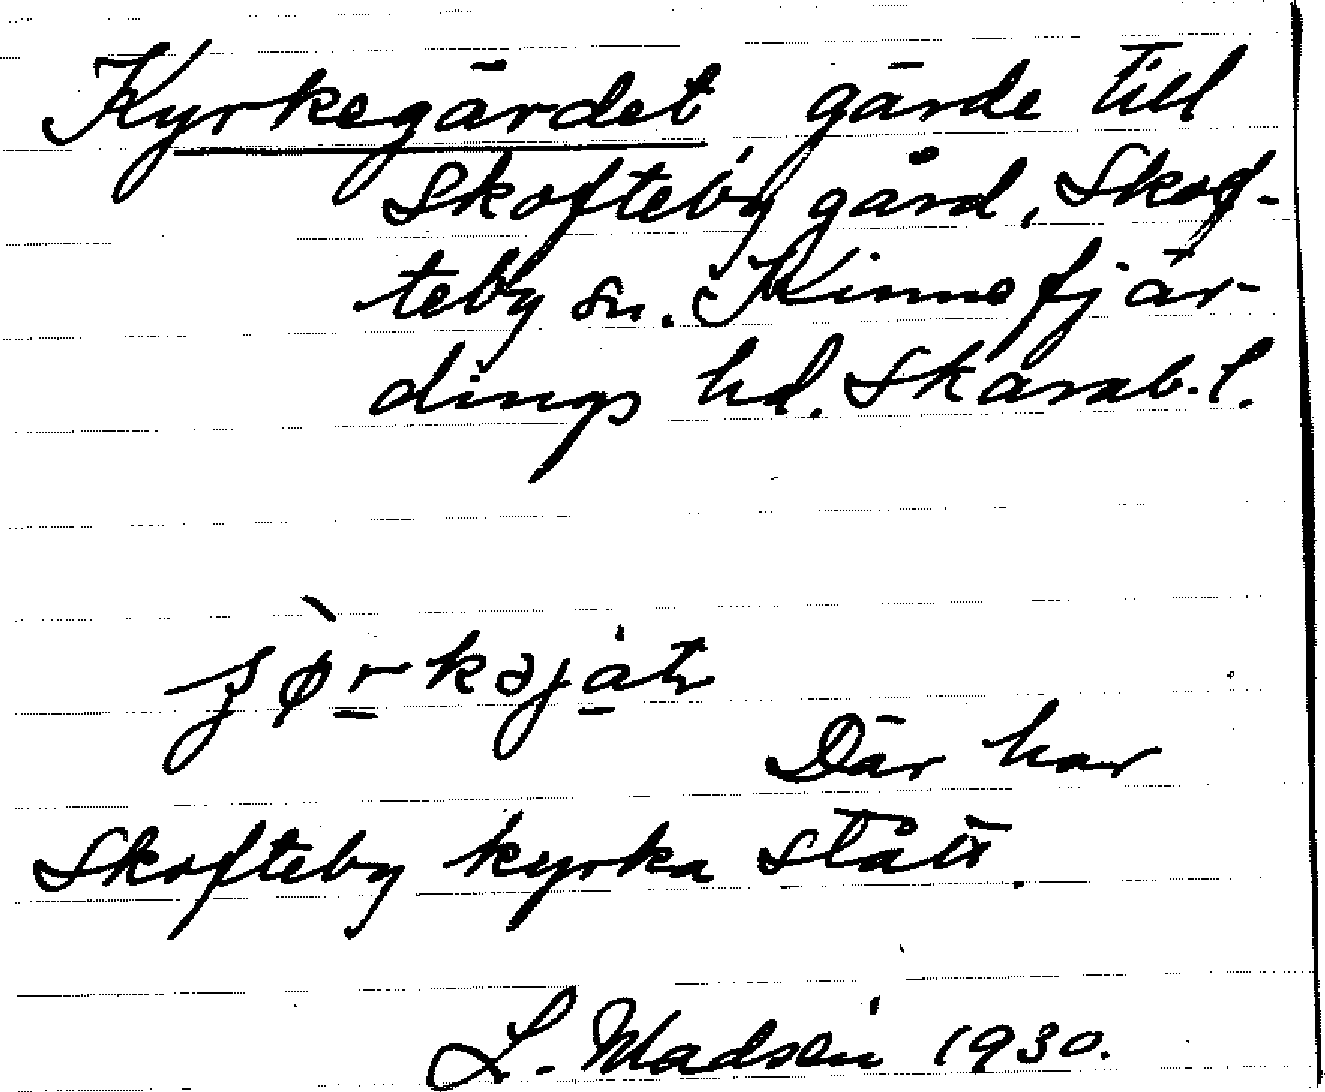 Kyrkegärdet gärde till
Skofteby gård, Skof-
teby sn. Kinnefjär-
dings hd. Skarab. l.
Där har
Skofteby kyrka stått.
L. Madsén 1930.